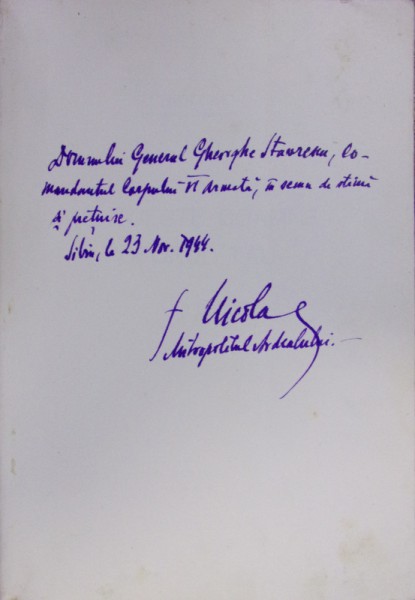 Domnului General Gheorghe Stavrescu, Co-
mandantul Corpului VI Armată, în semn de stimă
și prețuire.
Sibiu, la 23 Nov. 1944.
† Nicolae
Mitropolitul Ardealului.